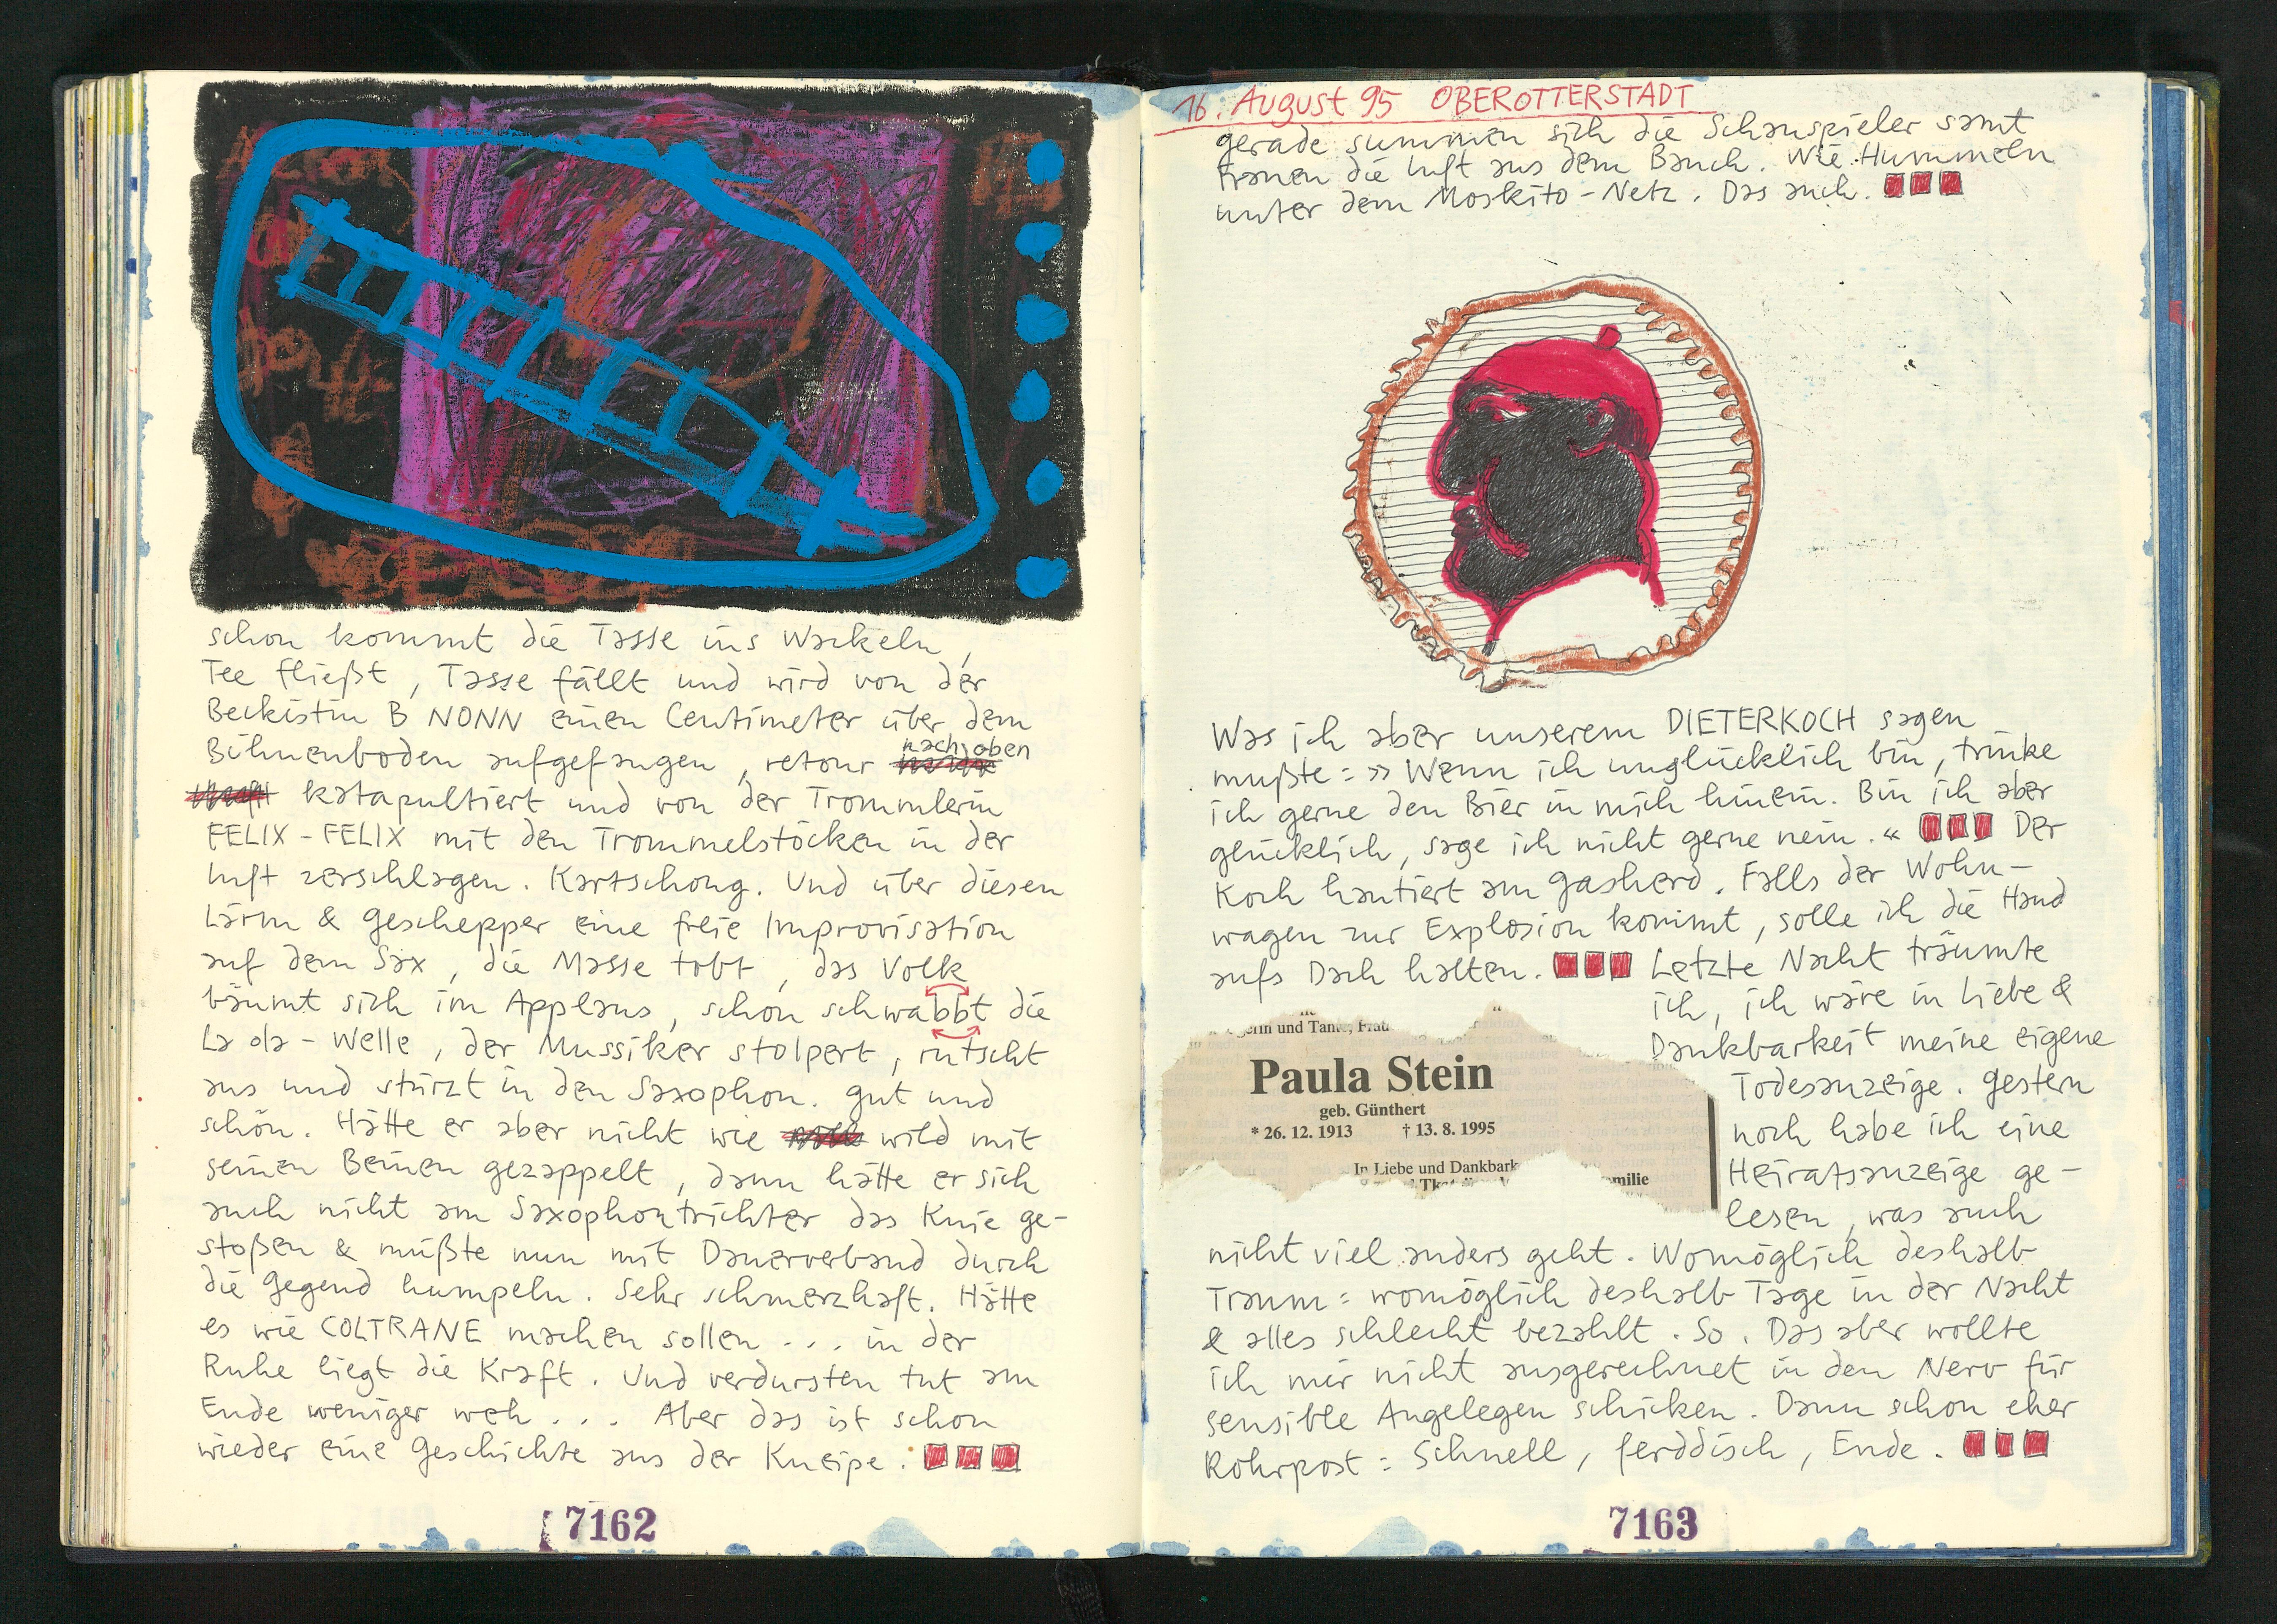 schon kommt die Tasse ins Wackeln,
Tee fließt, Tasse fällt und wird von der
Beckistin B NONN einen Centimeter über dem
Bühnenboden aufgefangen, retour nach oben
katapultiert und von der Trommlerin
FELIX-FELIX mit den Trommelstöcken in der
Luft zerschlagen. Kartschong. Und über diesen
Lärm & Geschepper eine freie Improvisation
auf dem Sax, die Masse tobt, das Volk
bäumt sich im Applaus, schon schwabbt die
La ola-Welle, der Mussiker stolpert, rutscht
aus und stürzt in den Saxophon. Gut und
schön. Hätte er aber nicht wie wild mit
seinen Beinen gezappelt, dann hätte er sich
auch nicht am Saxophontrichter das Knie ge-
stoßen & müßte nun mit Dauerverband durch
die Gegend humpeln. Sehr schmerzhaft. Hätte
es wie COLTRANE machen sollen ... in der
Ruhe liegt die Kraft. Und verdursten tut am
Ende weniger weh ... Aber das ist schon
wieder eine Geschichte aus der Kneipe.
7162
16. August 95 OBEROTTERSTADT
gerade summen sich die Schauspieler samt
Frauen die Luft aus dem Bauch. Wie Hummeln
unter dem Moskito-Netz. Das auch.
Was ich aber unserem DIETERKOCH sagen
mußte: »Wenn ich unglücklich bin, trinke
ich gerne den Bier in mich hinein. Bin ich aber
glücklich, sage ich nicht gerne nein.« Der
Koch hantiert am Gasherd. Falls der Wohn-
wagen zur Explosion kommt, solle ich die Hand
aufs Dach halten. Letzte Nacht träumte
ich, ich wäre in Liebe &
Dankbarkeit meine eigene
Todesanzeige. Gestern
noch habe ich eine
Heiratsanzeige ge-
lesen, was auch
und Tante, Frau
Paula Stein
geb. Günthert
* 26. 12. 1913 † 13. 8. 1995
In Liebe und Dankbark
milie
nicht viel anders geht. Womöglich deshalb
Traum: womöglich deshalb Tage in der Nacht
& alles schlecht bezahlt. So. Das aber wollte
ich mir nicht ausgerechnet in den Nerv für
sensible Angelegen schicken. Dann schon eher
Rohrpost: Schnell, ferddisch, Ende.
7163